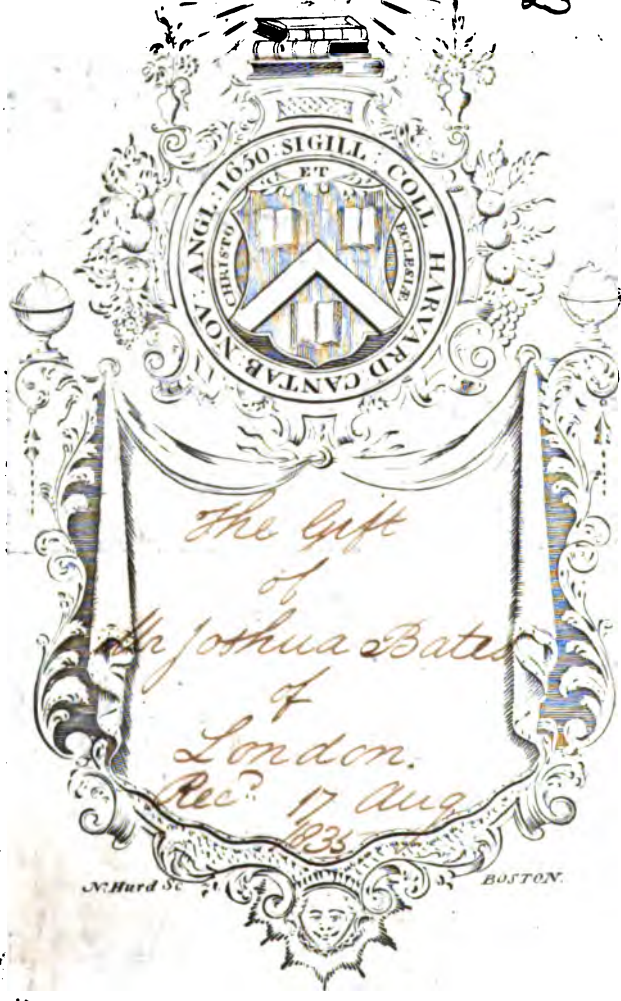 SIGILL : COLL HARVARD CANTAB : NOV : ANGL : 1650 :
CHRISTO ET ECCLESIÆ
The Gift
of
Mr Joshua Bates
of
London.
Recd. 17 Aug
1835
N. Hurd Sc
BOSTON.